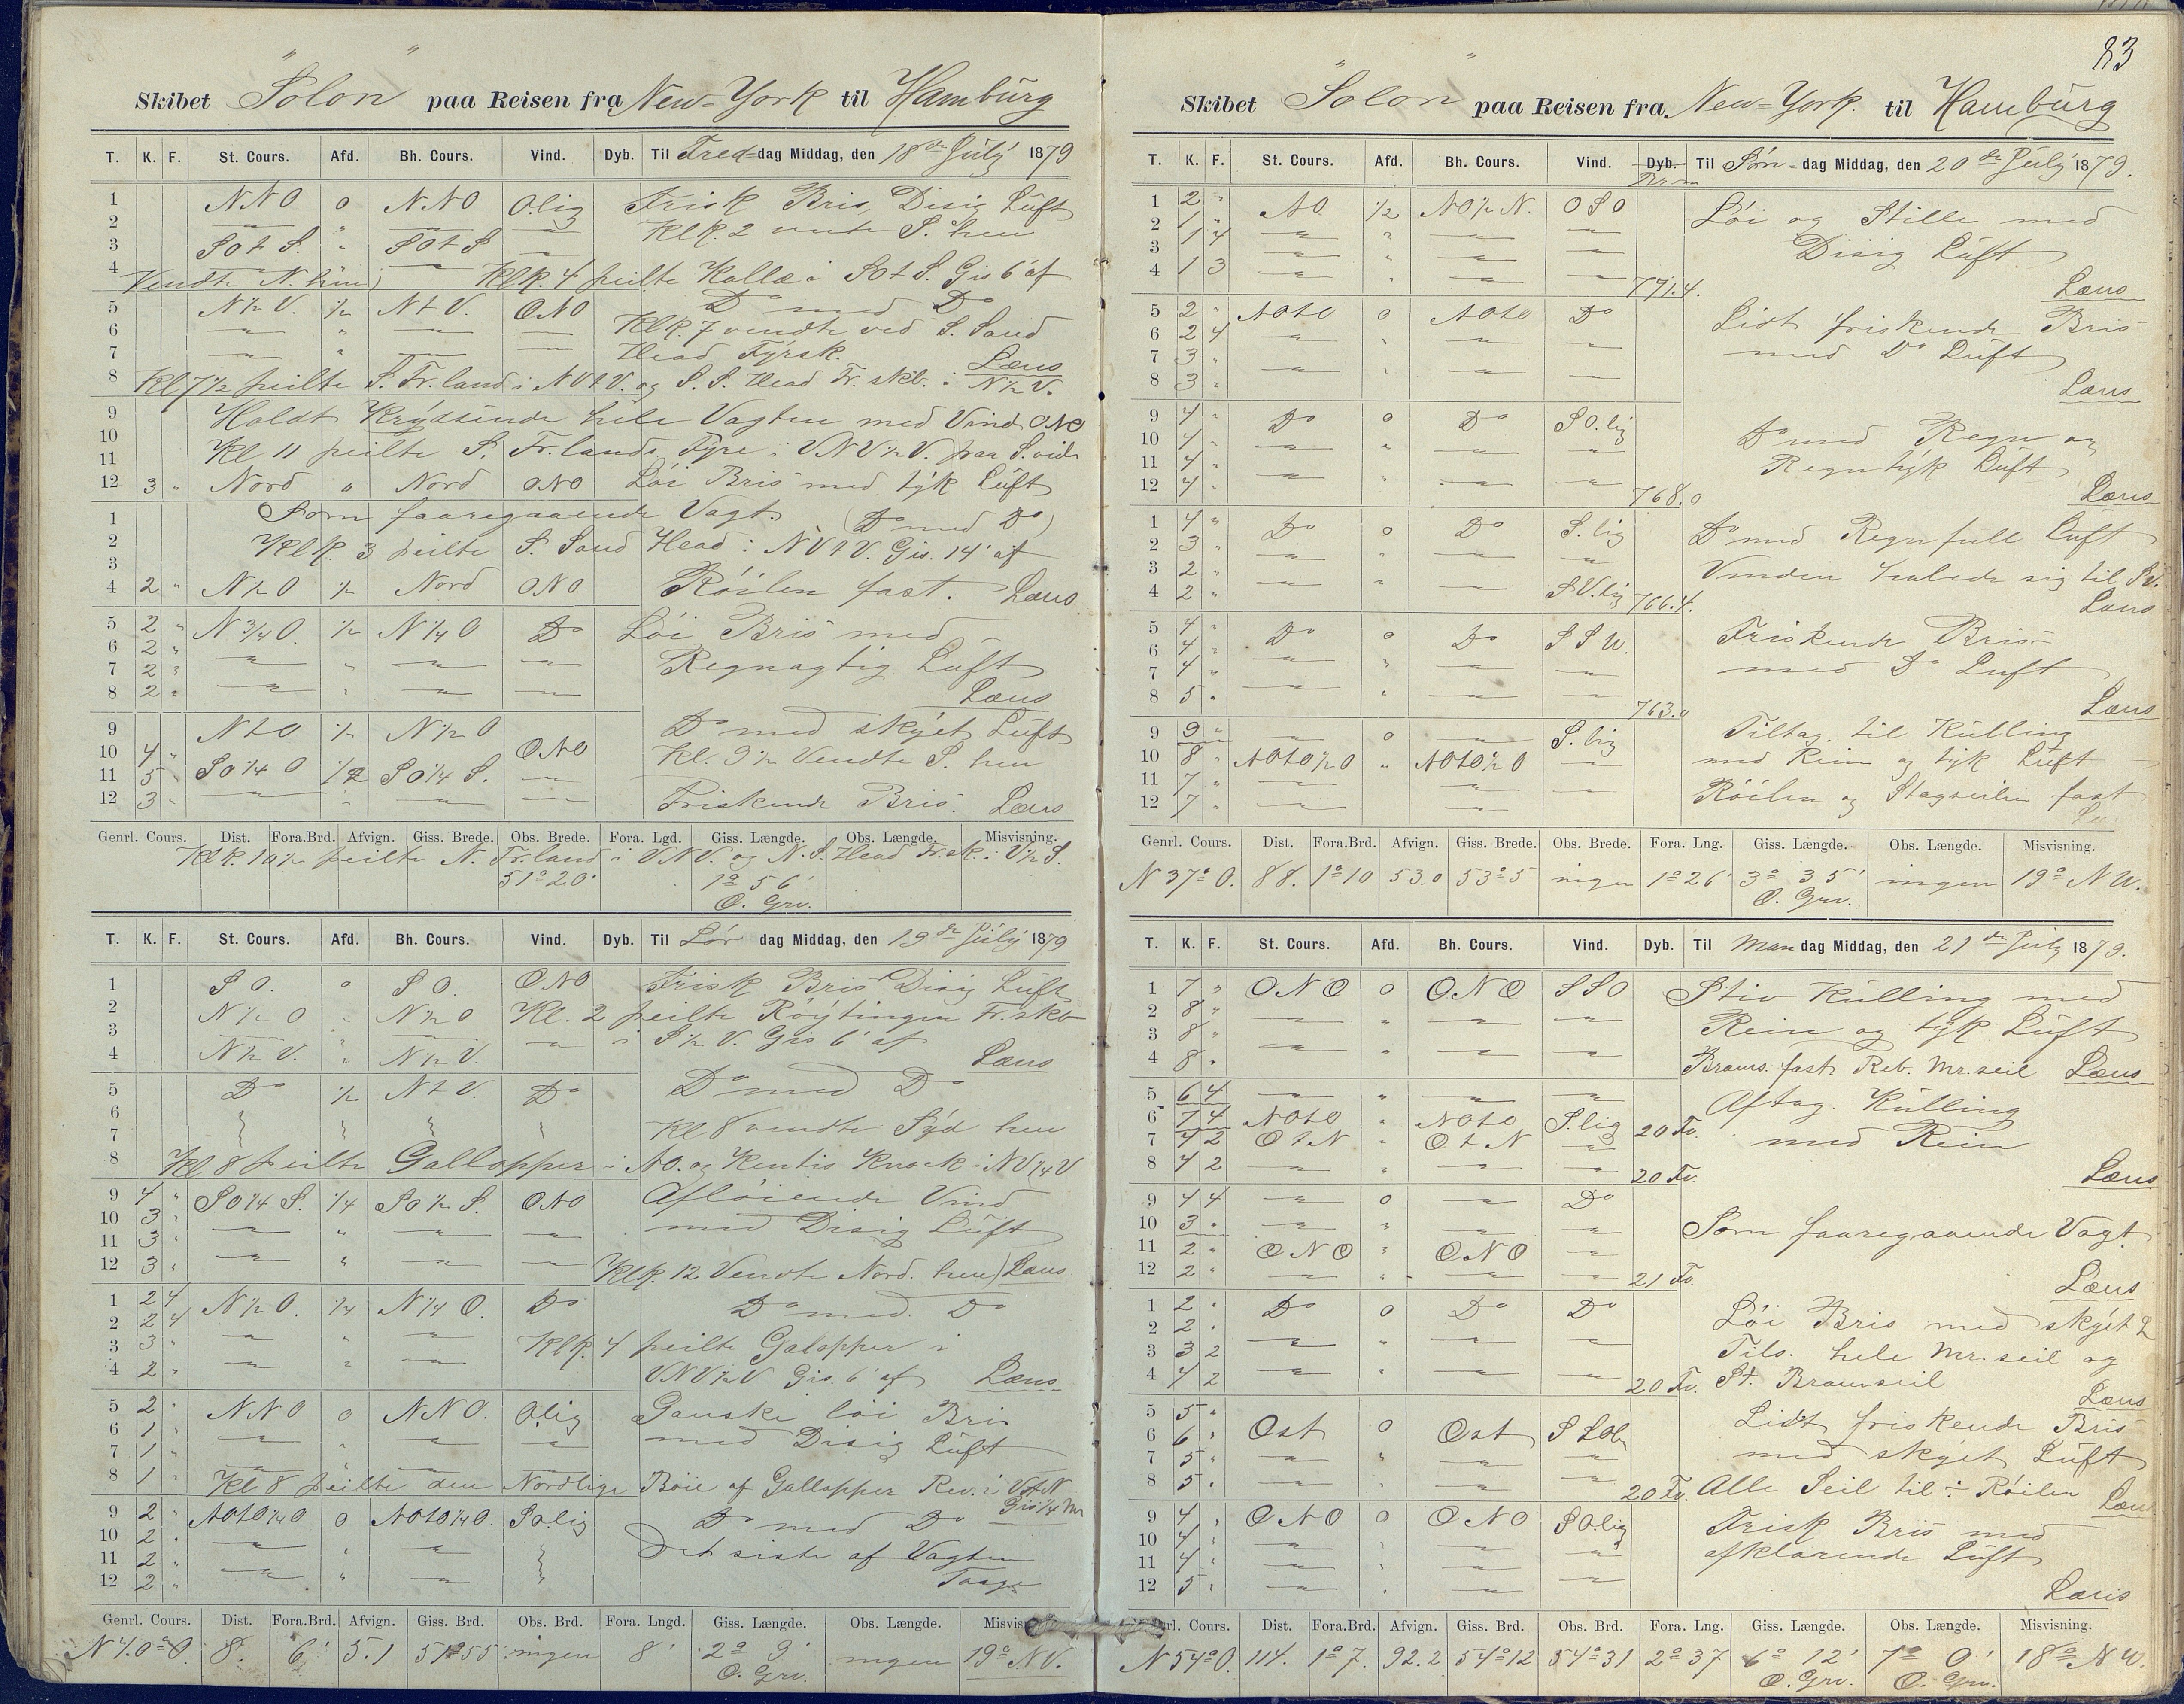 Skibet "Solon" paa Reisen fra New-York til Hamburg
T. K. F. St. Cours. Afd. Bh. Cours. Vind. Dyb. Til Fredag Middag, den 18de July 1879
1 NNO 0 NNO O.lig Frisk Bris, Disig Luft
2 " " " " Klk. 2 vendte S. hen
3 SOtS. " SOtS "
4 Vendte N. hen) " Klk. 4 peilte Kalle i SOtS. Gis 6' af
5 N½V. ½ NtV. ONO Do med Do
6 " " " " Klk. 7 vendte ved S. Sand
7 " " " " Head Fyrsk. Læns
8 Kl 7½ peilte S. Fr. land i NVtV. og S. S. Head Fr. skb. i N½V.
9 Holdt Krydsende hele Vagten med Vind ONO
10
11 Kl 11 peilte S. Fr. lands Fyre i VNV½V. paa S. vide
12 3 " Nord 0 Nord ONO Löi Bris med tyk Luft
1 Som faaregaaende Vagt. (Do med Do)
2 Klk. 3 peilte S. Sand Head i NVtV. Gis. 14' af
3
4 2 " N½O ½ Nord ONO Röilen fast. Læns
5 2 " N¾O. ½ N¼O Do Löi Bris med
6 2 " " " " "
7 2 " " " " " Regnagtig Luft
8 2 " " " " " Læns
9 NtO ½ N½O Do med skyet Luft
10 4 " ONO Kl. 9½ Vendte S. hen
11 5 " SO¼O ½ SO¼S. "
12 3 " " " " " Friskende Bris. Læns
Genrl. Cours. Dist. Fora.Brd. Afvign. Giss. Brede. Obs. Brede. Fora. Lgd. Giss. Længde. Obs. Længde. Misvisning.
Klk. 10½ peilte N. Fr. land i VNV. og N. S. Head Fr. sk. i V½S.
51°20' 1° 56'
O. Grv.
T. K. F. St. Cours. Afd. Bh. Cours. Vind. Dyb. Til Lör dag Middag, den 19de July 1879
1 SO. 0 SO. ONO Frisk Bris Disig Luft
2 N½O " N½O Kl. 2 peilte Röytingen Fr. skb
3 " i S½V. Gis 6' af
4 N½V. " N½V. Læns
5 Do ½ NtV. Do Do med Do
6
7 Kl 8 vendte Syd hen
8 Kl 8 peilte Gallopper i NO. og Kentis Knock i NV¼V
9 4 " SO¼S. ¼ SO½S. ONO Aflöiende Vind
10 3 " " " " " med Disig Luft
11 3 "
12 3 " " " " " Klk. 12 Vendte Nord. hen) Læns
1 2 4 N½O. ¼ N¼O. Do Do med. Do
2 2 4
3 3 " " " " Klk. 4 peilte Galopper i
4 2 " " " " VNV½V Gis. 6' af Læns
5 2 " NNO 0 NNO. O.lig Ganske löi Bris
6 1 " " " " " med Disig Luft
7 1 " " " " "
8 1 " Kl 8 peilte den Nordlige Böie af Gallopper Rev. i VtN Gis ¼ M
9 2 " NOtO¼O 0 NOtO¼O. SO.lig Do med Do
10 2 " " " "
11 2 " Det siste af Vagten
12 2 " " " " Taage
Genrl. Cours. Dist. Fora.Brd. Afvign. Giss. Brd. Obs. Brd. Fora. Lngd. Giss. Længde. Obs. Længde. Misvisn
N40°O. 8. 6' 5.1 51°55 ingen 8' 2° 9' ingen 19° NV.
O. Grv.
83
Skibet "Solon" paa Reisen fra New-York. til Hamburg
T. K. F. St. Cours. Afd. Bh. Cours. Vind. Dyb. Til Søn-dag Middag, den 20de July 1879.
1 2 " NO. ½ NO½N. OSO Löi og Stille med
2 1 " " " " "
3 1 4 " " " " Disig Luft
4 1 3 " " " " 771.4. Læns
5 2 " NOtO 0 NOtO Do Lidt friskende Bris
6 2 4 " " " "
7 3 " med Do Luft
8 3 " " " " " Læns
9 4 " Do 0 Do SO.lig Do med Regn og
10 4 " " " " "
11 4 " Regntyk Luft
12 4 " " " " " 768.0 Læns
1 4 " Do 0 Do S.lig Do med Regnfull Luft
2 3 " " " " "
3 2 " Vinden trak sig til SV.
4 2 " " " " SV.lig 766.4. Læns
5 4 " Do 0 Do SSW. Friskende Bris
6 4 " " " " "
7 4 " med Do Luft
8 5 " " " " " 763.0 Læns
9 9 " " 0 " S.lig Tiltag. til Kulling
10 8 " NOtO½O " NOtO½O " med Rein og tyk Luft
11 7 " " "
12 7 " " " Röilen og Stagseilen fast
Genrl. Cours. Dist. Fora.Brd. Afvign. Giss. Brede. Obs. Brede. Fora. Lng. Giss. Længde. Obs. Længde. Misvisning.
N37°O. 88. 1°10 53.0 53°5 ingen 1°26' 3° 35' ingen 19° NW.
O. Grv.
T. K. F. St. Cours. Afd. Bh. Cours. Vind. Dyb. Til Man dag Middag, den 21de July 1879.
1 7 " ONO 0 ONO SSO Stiv Kulling med
2 8 " " " " "
3 8 " Rein og tyk Luft
4 8 " " " " " Brams. fast Reb. Mr. seil Læns
5 6 4 " " " " Aftag. Kulling
6 7 4 NOtO " NOtO S.lig 20 Fv.
7 4 2 OtN " OtN " med Rein
8 4 2 " " " " 20 Fv. Læns
9 4 4 " 0 " Do
10 3 " " " " " Som faaregaaende Vagt
11 2 " ONO " ONO "
12 2 " " " " " 21 Fv. Læns
1 2 " Do 0 Do Do Löi Bris med skyet L
2 2 "
3 3 2 " " " " Tils. hele Mr. seil og
4 4 2 " " " " 20 Fv. St. Bramseil Læns
5 5 " Lidt friskende Bris
6 6 " Ost 0 Ost
7 5 " " " " " med skyet Luft
8 5 " " " " " 20 Fv. Alle Seil til ÷ Röilen Læns
9 4 " ONO 0 ONO SO.lig Frisk Bris med
10 4 " " " " "
11 4 " " " " afklarende Luft
12 5 " " " " " Læns
rl. Cours. Dist. Fora.Brd. Afvign. Giss. Brd. Obs. Brd. Fora. Lng. Giss. Længde. Obs. Længde. Misvisning.
N54°O. 114. 1°7. 92.2 54°12 54°31 2°37 6° 12' 7° 0' 18° NW.
O. Grv. O. Grv.